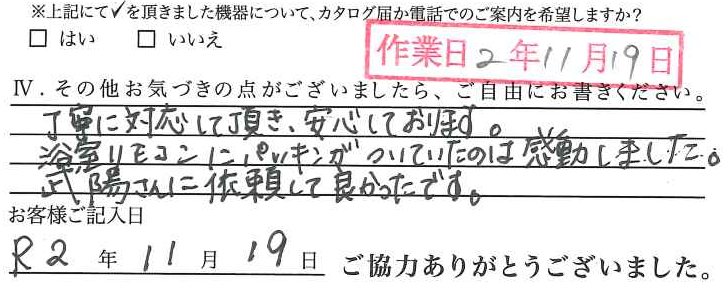 ※上記にて✓を頂きました機器について、カタログ届か電話でのご案内を希望しますか?
□ はい □ いいえ
作業日 2年11月19日
Ⅳ.その他お気づきの点がございましたら、ご自由にお書きください。
丁寧に対応して頂き、安心しております。
浴室リモコンにパッキンがついていたのは感動しました。
武陽さんに依頼して良かったです。
お客様ご記入日
R2年11月19日 ご協力ありがとうございました。